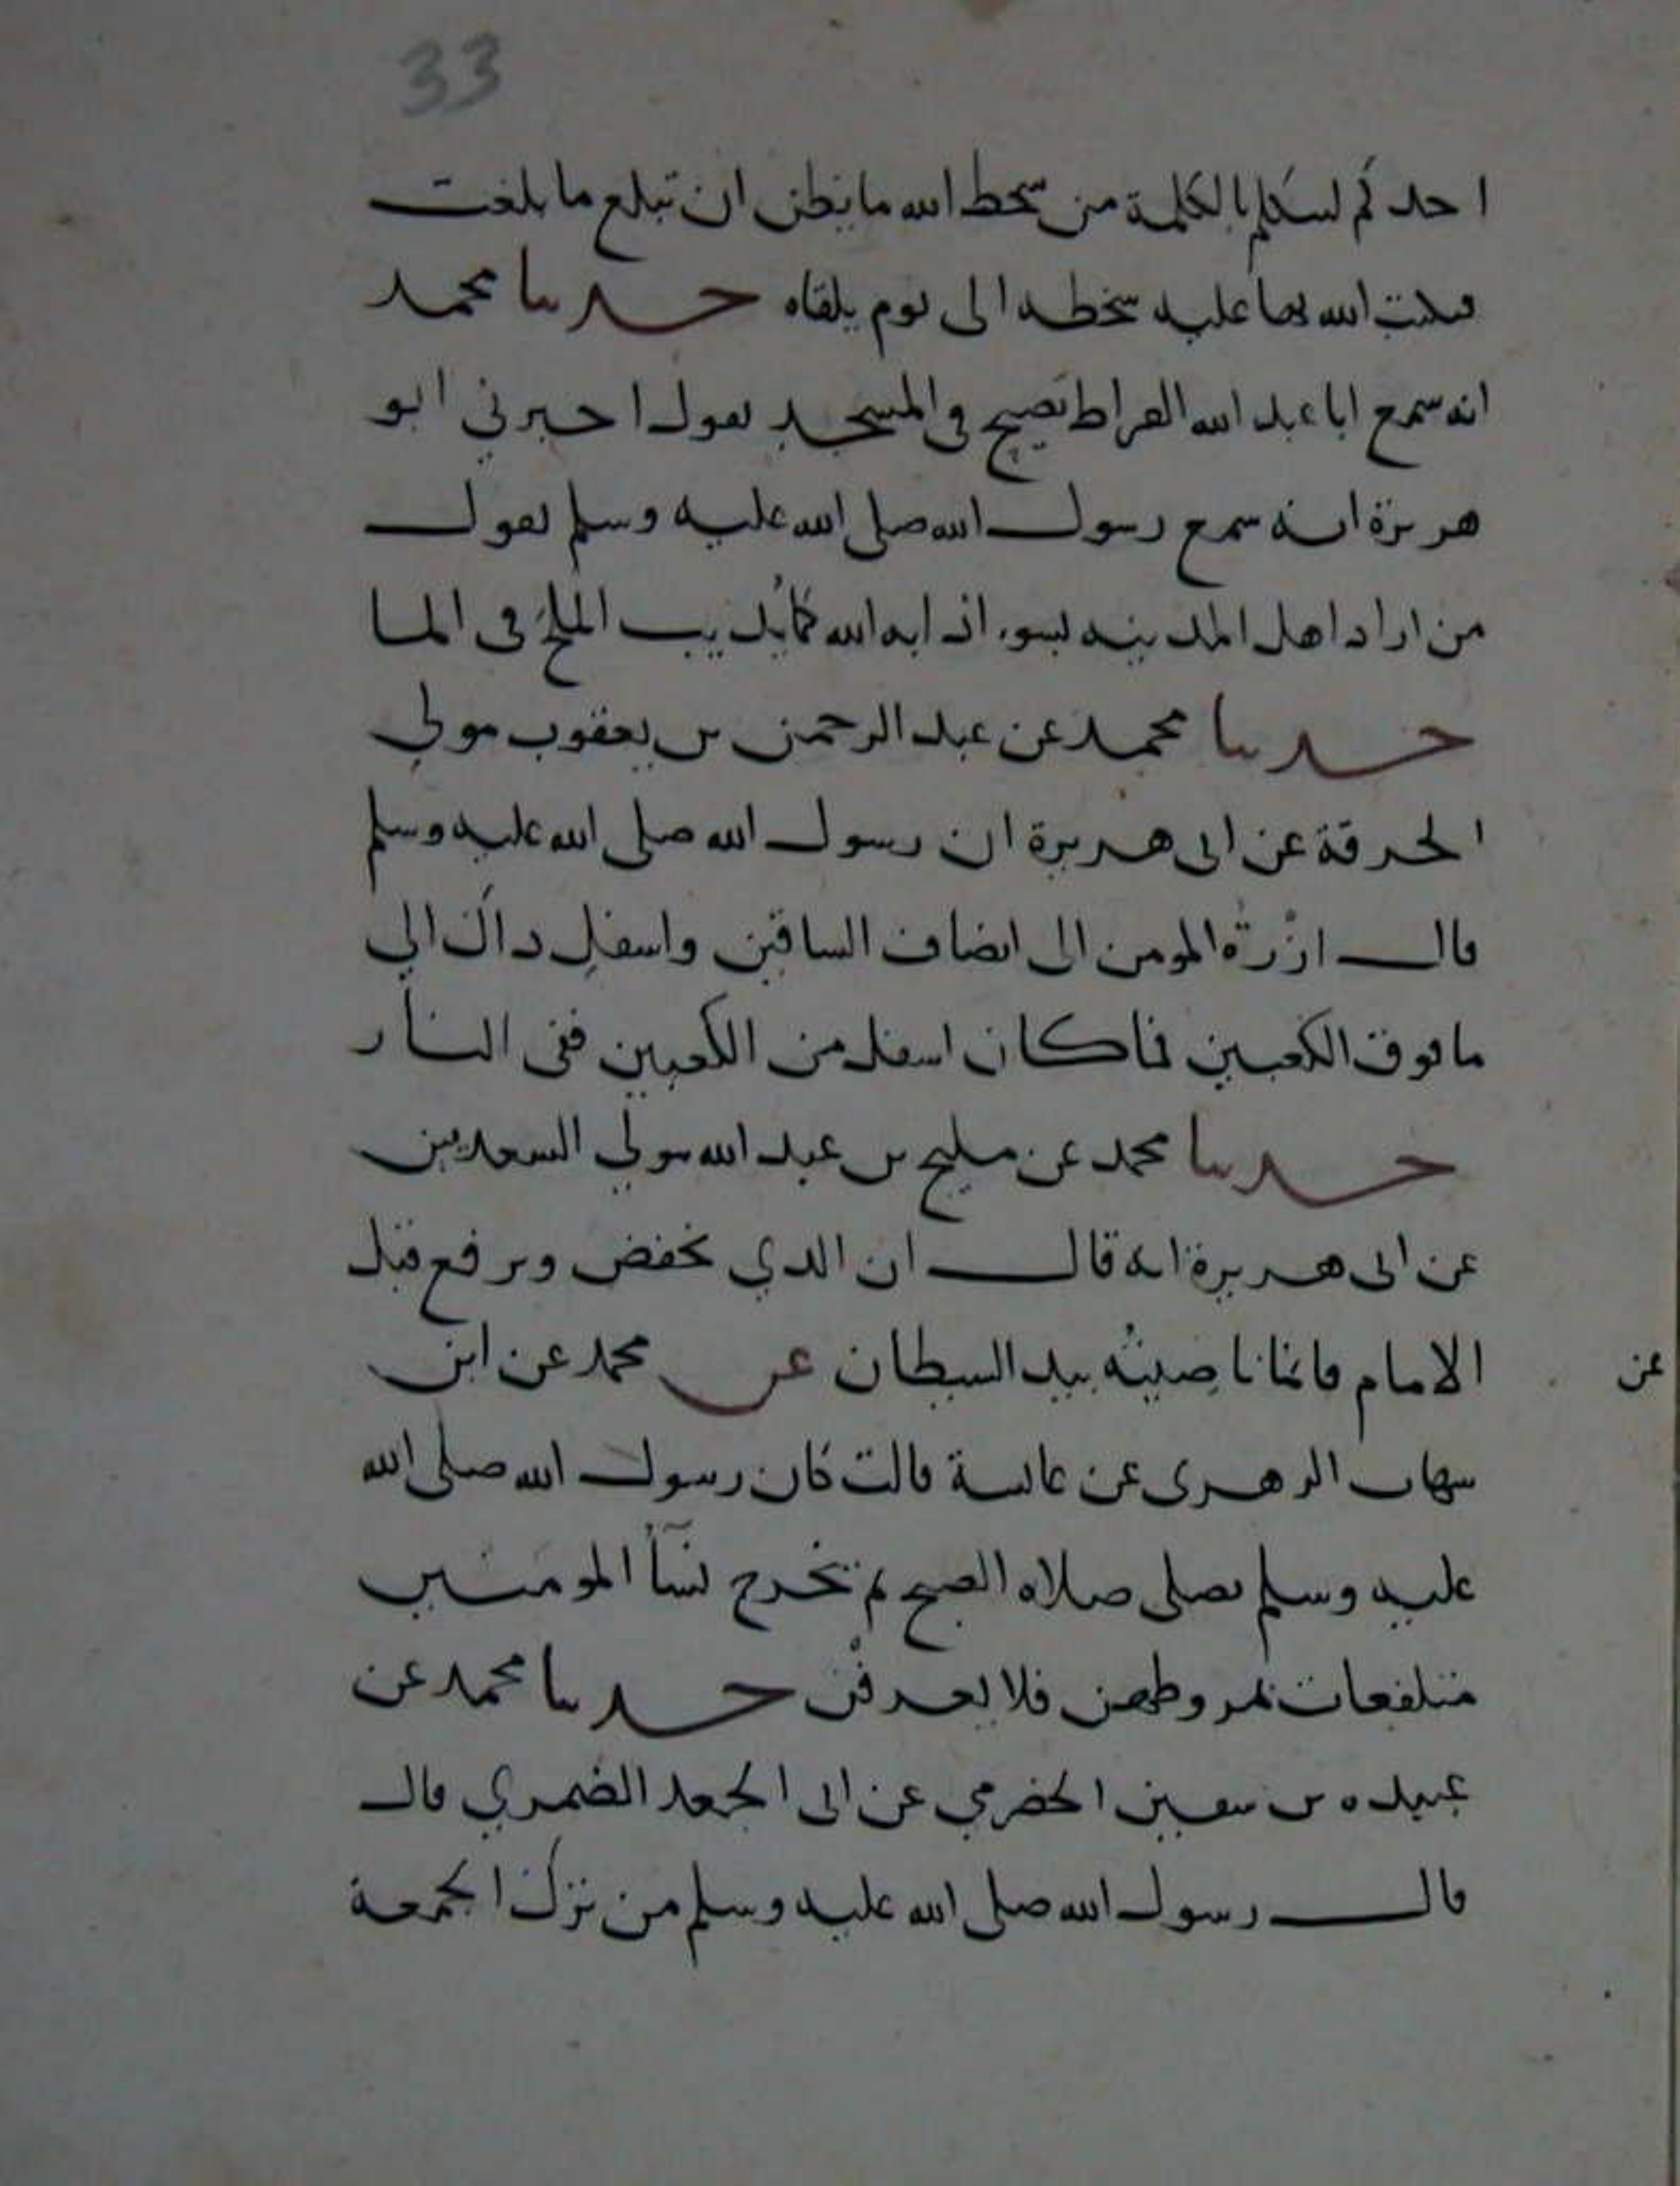 33
احدكم ليتكلم بالكلمة من سخط الله ما يظن ان تبلغ ما بلغت
فيكتب الله بها عليه سخطه الى يوم يلقاه حدثنا محمد
انه سمع ابا عبد الله القراظ يصيح في المسجد يقول اخبرني ابو
هريرة انه سمع رسول الله صلى الله عليه وسلم يقول
من اراد اهل المدينه بسوء اذابه الله كما يذيب الملح في الما
حدثنا محمد عن عبد الرحمن بن يعقوب مولي
الحرقة عن ابى هريرة ان رسول الله صلى الله عليه وسلم
قال ازْرَةُ المومن الى انصاف الساقين واسفلِ داك الي
ما فوق الكعبين فما كان اسفل من الكعبين ففى النار
حدثنا محمد عن مليح بن عبد الله مولي السعديين
عن ابى هريرة انه قال ان الدي يخفض ويرفع قبل
الامام فانما ناصيتُه بيد الشيطان عن محمد عن ابن
عن
شهاب الزهرى عن عائشة قالت كان رسول الله صلى الله
عليه وسلم يصلى صلاه الصبح ثم تخرج نسآُ المومنين
متلفعات بمروطهن فلا يعرفْن حدثنا محمد عن
عبيده بن سفين الحضرمي عن ابى الجعد الضمري قال
قال رسول الله صلى الله عليه وسلم من ترك الجمعة